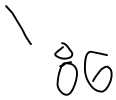 \ 86